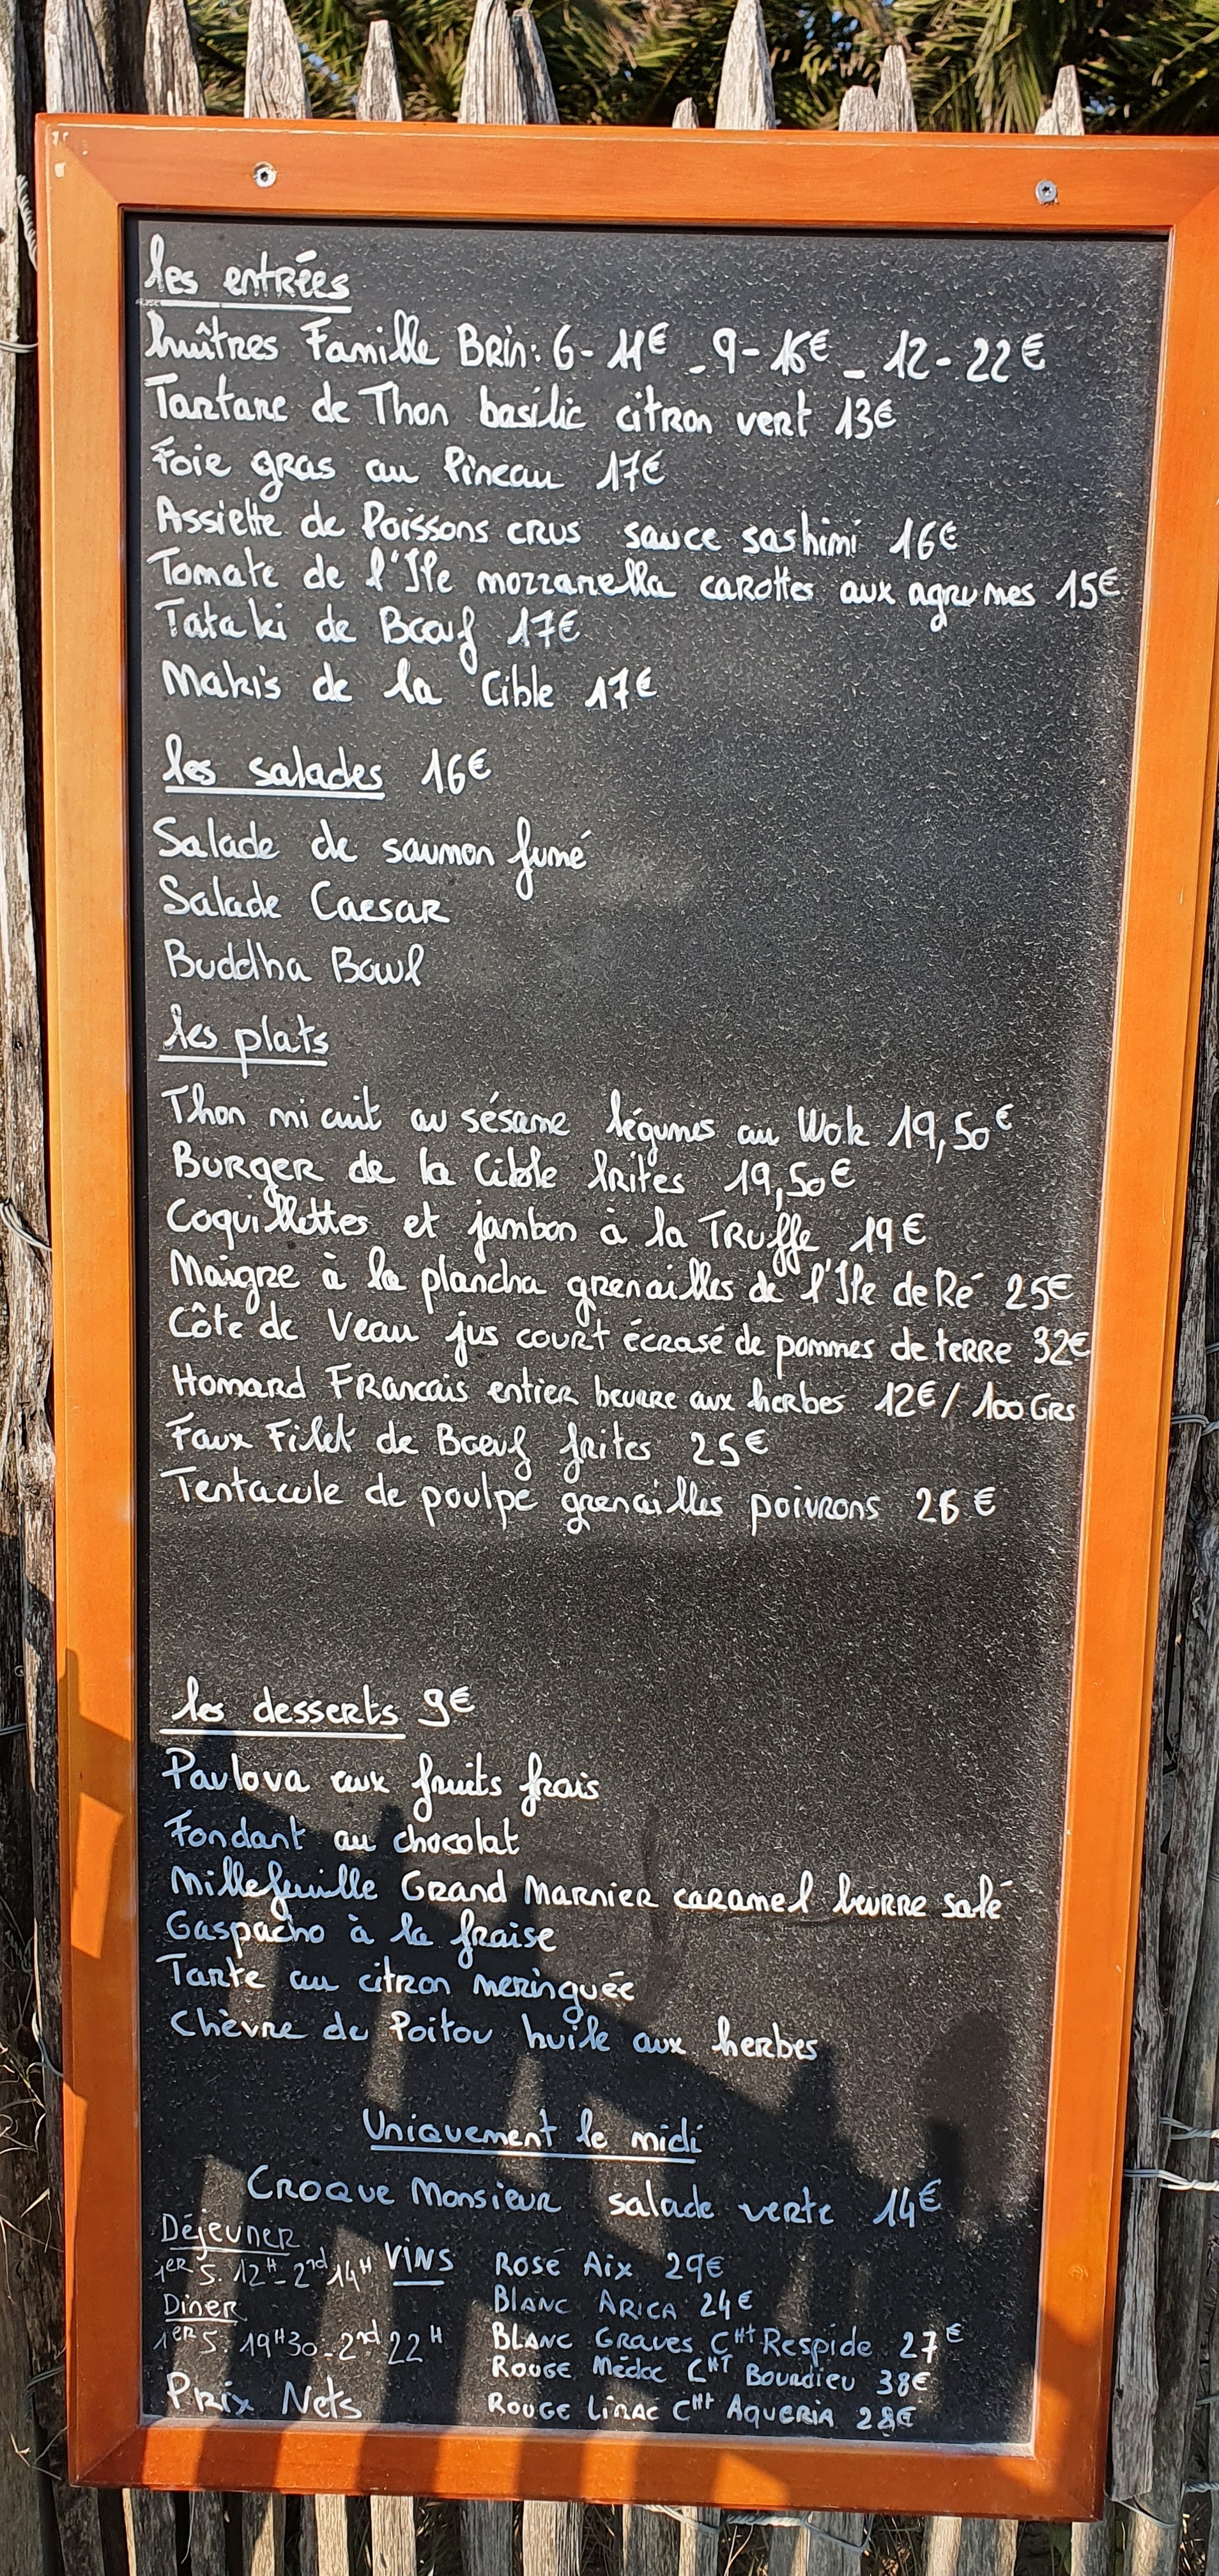 les entrées
huîtres Famille Brin: 6- 11€ - 9- 16€ - 12- 22€
Tartare de Thon basilic citron vert 13€
Foie gras au Pineau 17€
Assiette de Poissons crus sauce sashimi 16€
Tomate de l'Ile mozzarella carottes aux agrumes 15€
Tataki de Bœuf 17€
Maki's de la Cible 17€
les salades 16€
Salade de saumon fumé
Salade Caesar
Buddha Bowl
les plats
Thon mi cuit au sésame légumes au Wok 19,50€
Burger de la Cible frites 19,50€
Coquillettes et jambon à la Truffe 19€
Maigre à la plancha grenailles de l'Ile de Ré 25€
Côte de Veau jus court écrasé de pommes de terre 32€
Homard Francais entier beurre aux herbes 12€/ 100 Grs
Faux Filet de Bœuf frites 25€
Tentacule de poulpe grenailles poivrons 26€
les desserts 9€
Pavlova aux fruits frais
Fondant au chocolat
Millefeuille Grand Marnier caramel beurre salé
Gaspacho à la fraise
Tarte au citron meringuée
Chèvre du Poitou huile aux herbes
Uniquement le midi
Croque Monsieur salade verte 14€
Déjeuner
1er S. 12H - 2nd 14H
Diner
1er S. 19H30 - 2nd 22H
Prix Nets
Vins
Rosé Aix 29€
Blanc Arica 24€
Blanc Graves Cht Respide 27€
Rouge Médoc Cht Bourdieu 38€
Rouge Lirac Cht Aqueria 28€